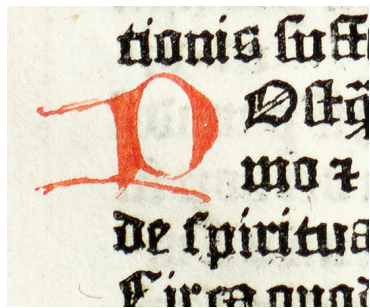 tionis sust
POstq̃
mo ⁊
de spiritua
Circa quod